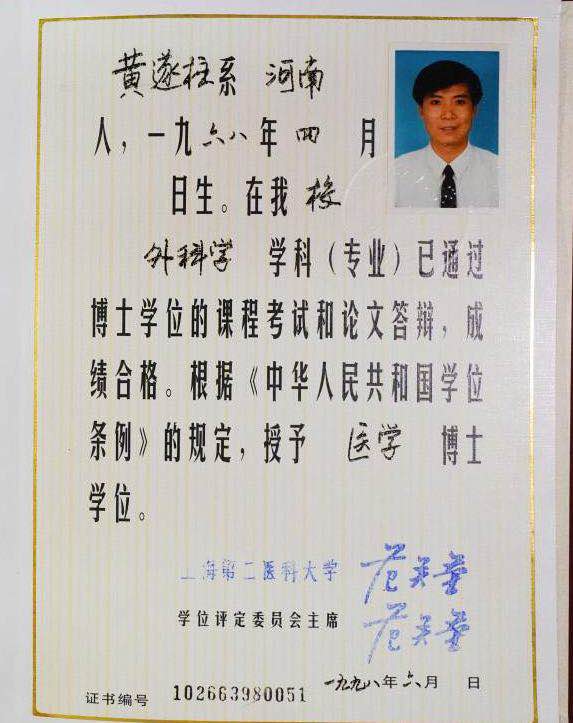 黄遂柱系 河南
人，一九六八年 四 月
日生。在我 校
外科学 学科（专业）已通过
博士学位的课程考试和论文答辩，成
绩合格。根据《中华人民共和国学位
条例》的规定，授予 医学 博士
学位。
上海第二医科大学
学位评定委员会主席
一九九八年 六 月 日
证书编号 102663980051